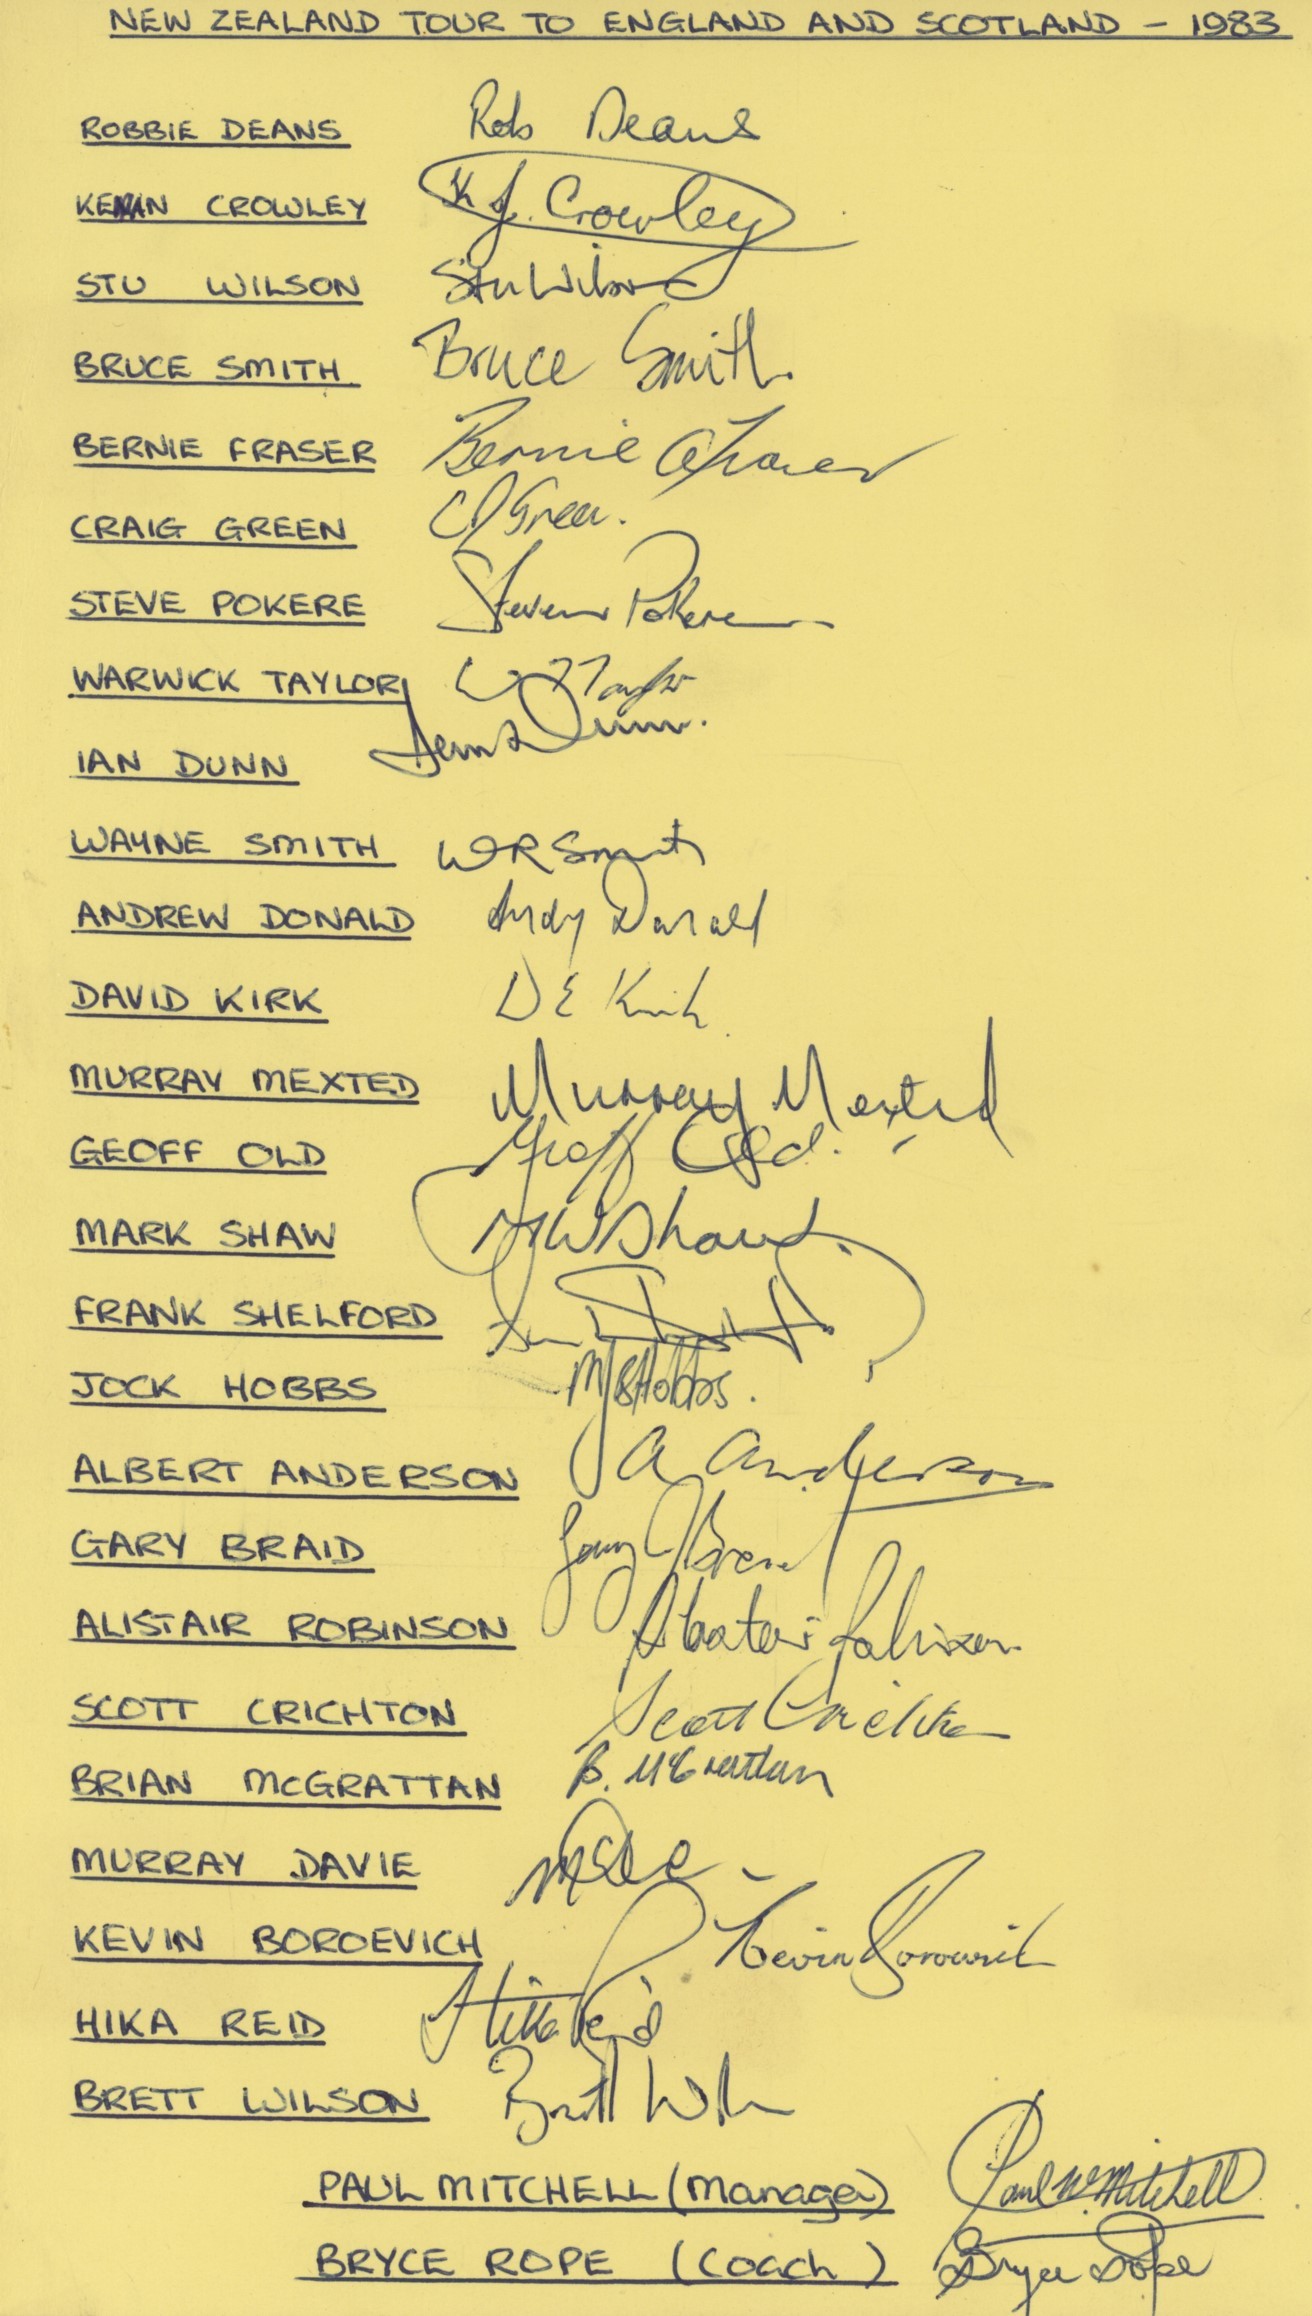 NEW ZEALAND TOUR TO ENGLAND AND SCOTLAND - 1983
ROBBIE DEANS Rob Deans
CROWLEY K J. Crowley
STU WILSON Stu Wilson
BRUCE SMITH Bruce Smith
BERNIE FRASER Bernie Fraser
CRAIG GREEN C I Green.
STEVE POKERE Steven Pokere
WARWICK TAYLOR W T Taylor
IAN DUNN Dunn.
WAYNE SMITH W R Smith
ANDREW DONALD Andy Donald
DAVID KIRK D E Kirk
MURRAY MEXTED Murray Mexted
GEOFF OLD Geoff Old.
MARK SHAW M W Shaw.
FRANK SHELFORD
JOCK HOBBS M J B Hobbs.
ALBERT ANDERSON A Anderson
GARY BRAID Gary J Braid
ALISTAIR ROBINSON Robinson
SCOTT CRICHTON Scott Crichton
BRIAN MCGRATTAN B. McGrattan
MURRAY DAVIE
KEVIN BOROEVICH Kevin Boroevich
HIKA REID Hika Reid
BRETT WILSON Brett Wilson
PAUL MITCHELL (Manager) Paul W. Mitchell
BRYCE ROPE (Coach) Bryce Rope